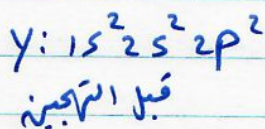 Y: 1s² 2s² 2p²
قبل التهجين